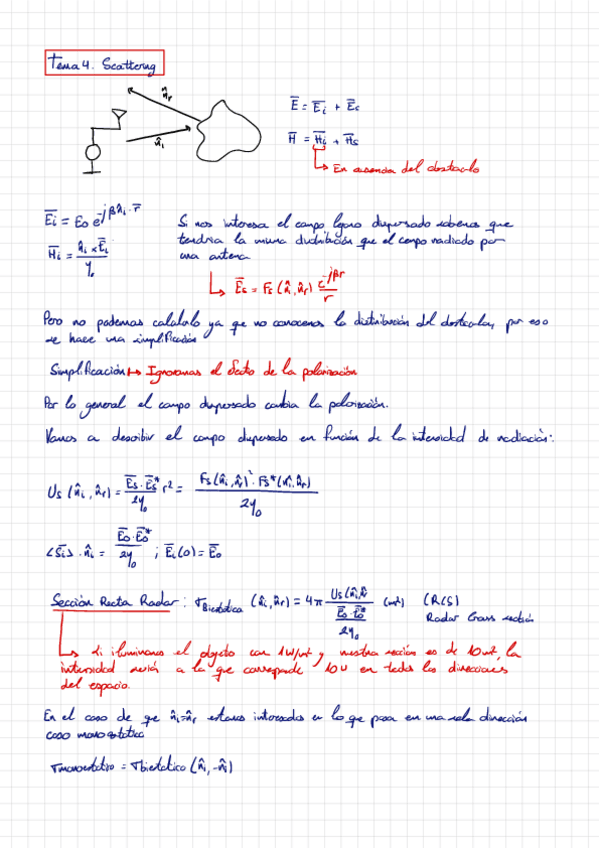 Tema 4. Scattering
n̂r
n̂i
Ē = Ēi + Ēs
H̄ = H̄i + H̄s
↳ En ausencia del obstaculo
Ēi = E0 e^-jβn̂i·r̄
H̄i = n̂i × Ēi / η0
Si nos interesa el campo lejano dispersado sabemos que
tendria la misma distribución que el campo radiado por
una antena
↳ Ēs = F̄s (n̂i, n̂r) e^-jβr / r
Pero no podemos calcularlo ya que no conocemos la distribución del obstaculo, por eso
se hace una simplificación
Simplificación ↦ Ignoramos el efecto de la polarización
Por lo general el campo dispersado cambia la polarización.
Vamos a describir el campo dispersado en función de la intensidad de radiación:
Us (n̂i, n̂r) = Ēs·Ēs* / 2η0 r² = F̄s(n̂i, n̂r)·F̄s*(n̂i, n̂r) / 2η0
<S̄i>·n̂i = Ē0·Ē0* / 2η0 ; Ēi(0) = Ē0
Sección Recta Radar: σBiestatica (n̂i, n̂r) = 4π Us(n̂i, n̂r) / (Ē0·Ē0* / 2η0) (m²) (RCS)
Radar Cross section
↳ Si iluminamos el objeto con 1W/m² y nuestra sección es de 10m², la
intensidad será a la que corresponde 10W en todas las direcciones
del espacio.
En el caso de que n̂i=n̂r estamos interesados en lo que pasa en una sola dirección
caso monostatico
σmonoestatico = σbiestatico (n̂i, -n̂i)